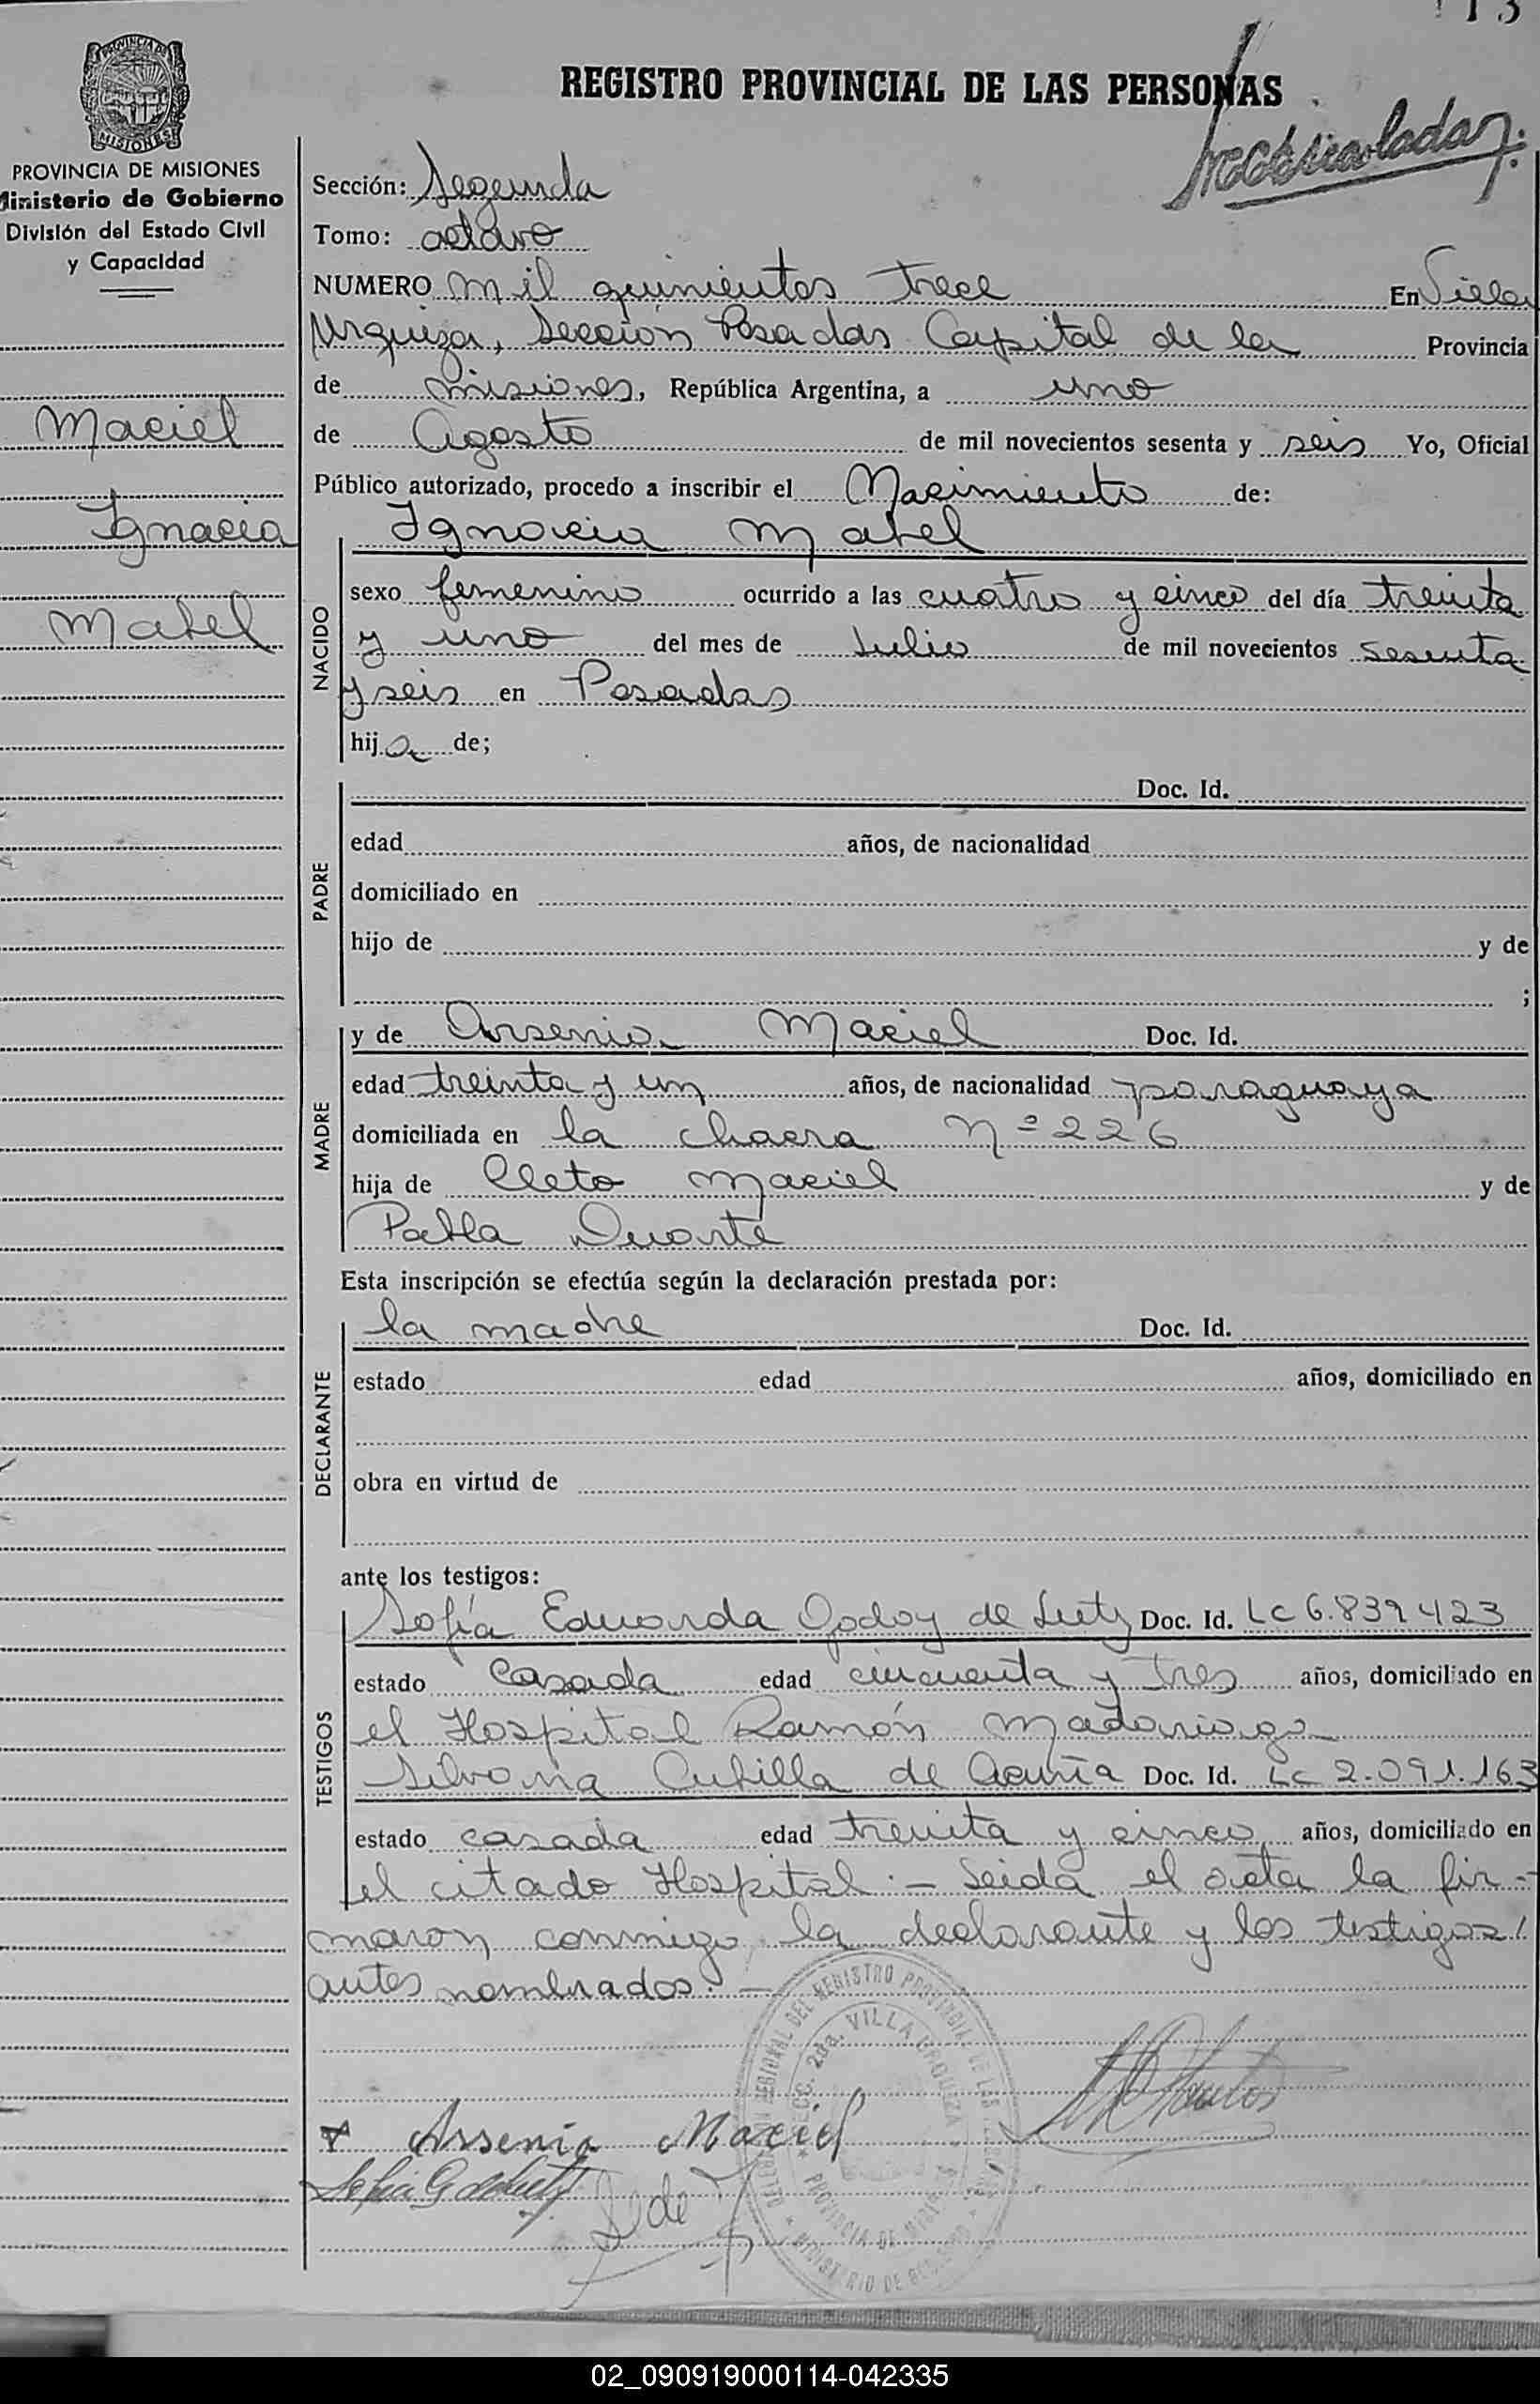 113
PROVINCIA DE
MISIONES
REGISTRO PROVINCIAL DE LAS PERSONAS
PROVINCIA DE MISIONES
Ministerio de Gobierno
División del Estado Civil
y Capacidad
Maciel
Ignacia
Mabel
Sección: Segunda
Tomo: octavo
NUMERO mil quinientos trece En Villa
Urquiza, Sección Posadas Capital de la Provincia
de misiones, República Argentina, a uno
de Agosto de mil novecientos sesenta y seis Yo, Oficial
Público autorizado, procedo a inscribir el Nacimiento de:
NACIDO
Ignacia Mabel
sexo femenino ocurrido a las cuatro y cinco del día treinta
y uno del mes de Julio de mil novecientos sesenta
y seis en Posadas
hija de;
PADRE
Doc. Id.
edad años, de nacionalidad
domiciliado en
hijo de y de
;
MADRE
y de Arsenia Maciel Doc. Id.
edad treinta y un años, de nacionalidad paraguaya
domiciliada en la chacra Nº 226
hija de Cleto Maciel y de
Pabla Duarte
Esta inscripción se efectúa según la declaración prestada por:
DECLARANTE
la madre Doc. Id.
estado edad años, domiciliado en
obra en virtud de
ante los testigos:
TESTIGOS
Sofía Eduarda Godoy de Lutz Doc. Id. LC 6.839423
estado Casada edad cincuenta y tres años, domiciliado en
el Hospital Ramón Madariaga
Silvana Cubilla de Acuña Doc. Id. LC 2.091.163
estado casada edad treinta y cinco años, domiciliado en
el citado Hospital.- Leida el acta la fir-
maron conmigo, la declarante y los testigos
antes nombrados.-
DELEGACION REGIONAL DEL REGISTRO PROVINCIAL DE LAS PERSONAS
SECC. 2da. VILLA URQUIZA
PROVINCIA DE MISIONES
MINISTERIO DE GOBIERNO
Arsenia Maciel
Sofía G de Lutz
02_090919000114-042335